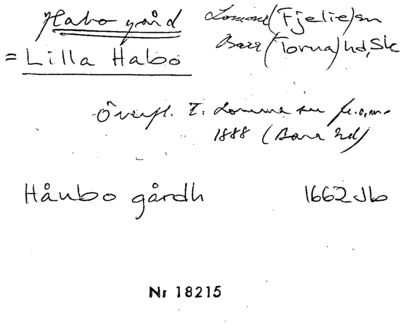 Habo gård Lomma (Fjelie) sn
= Lilla Habo Bara (Torna) hd, Sk
Överfl. t. Lomma sn fr.o.m.
1888 (Bara hd)
Håubo gårdh 1662 Jb
Nr 18215